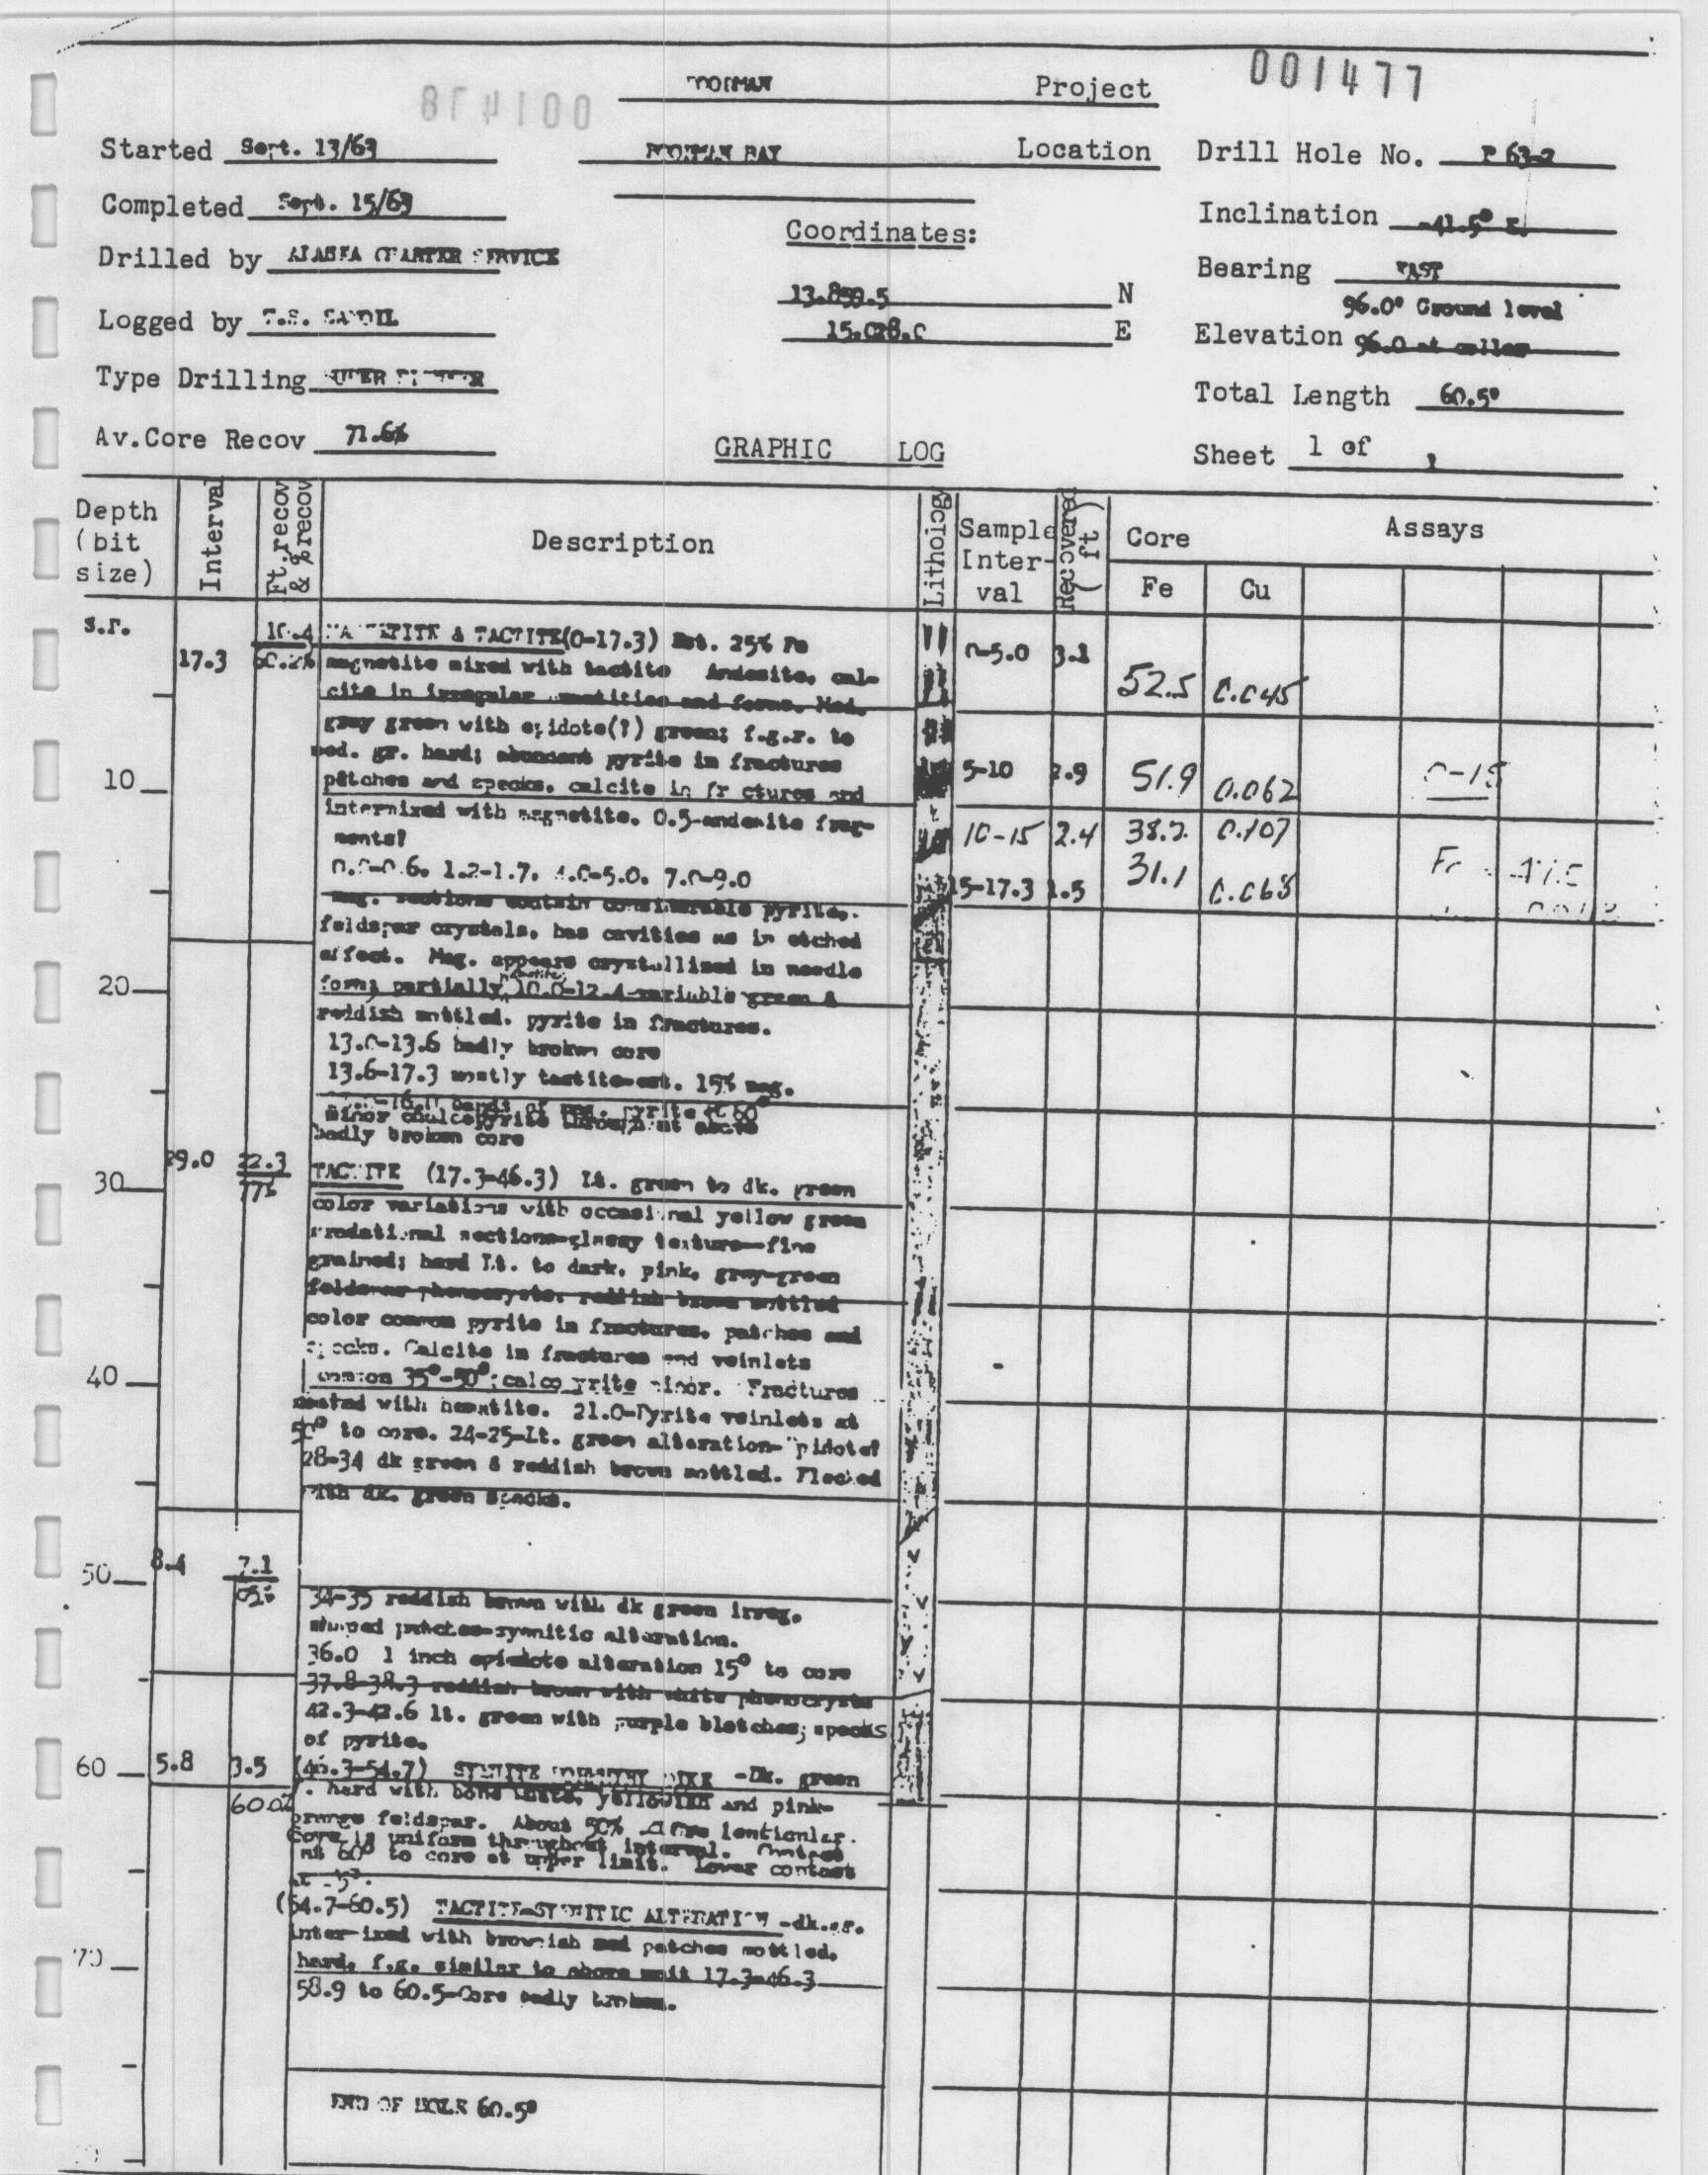 001477
Project
Started Sept. 13/63
Location
Drill Hole No. P 63-2
Completed Sept. 15/63
Inclination -41.5° E.
Coordinates:
Drilled by ALASKA CHARTER SERVICE
Bearing EAST
13.859.5 N
96.0' Ground level
Logged by
15.028.0 E
Elevation 96.0 at collar
Type Drilling
Total Length 60.5'
Av.Core Recov 71.6%
GRAPHIC LOG
Sheet 1 of
Depth (bit size)
Interval
Ft.recov & %recov
Description
Lithology
Sample Interval
Recovered (ft)
Core
Assays
Fe
Cu
17.3
60.2%
& TACTITE(0-17.3) Est. 25% Fe
magnetite mixed with tactite Andesite, cal-
cite in irregular quantities and forms. Med.
gray green with epidote(?) green; f.g.r. to
med. gr. hard; abundant pyrite in fractures
patches and specks. calcite in fractures and
intermixed with magnetite. 0.5-andesite frag-
ments?
1.2-1.7, 4.0-5.0, 7.0-9.0
mag. sections contain considerable pyrite,
feldspar crystals, has cavities as in etched
affect. Mag. appears crystallized in needle
form; partially 10.0-12.4-variable green &
reddish mottled. pyrite in fractures.
13.0-13.6 badly broken core
13.6-17.3 mostly tactite-est. 15% mag.
bands of mag. pyrite
minor chalcopyrite throughout above
badly broken core
0-5.0 3.1 52.5 0.045
5-10 2.9 51.9 0.062
0-15
10-15 2.4 38.2 0.107
15-17.3 1.5 31.1 0.068
Fe
10
20
29.0 22.3
77%
30
TACTITE (17.3-46.3) Lt. green to dk. green
color variations with occasional yellow green
gradational sections-glassy texture-fine
grained; hard Lt. to dark, pink, gray-green
feldspar phenocrysts, reddish brown mottled
color common pyrite in fractures, patches and
specks. Calcite in fractures and veinlets
common 35°-50°; calcopyrite minor. Fractures
coated with hematite. 21.0-Pyrite veinlets at
50° to core. 24-25-Lt. green alteration-epidote?
28-34 dk green & reddish brown mottled. Flecked
with dk. green specks.
40
8.4 7.1
50
34-35 reddish brown with dk green irreg.
shaped patches-syenitic alteration.
36.0 1 inch epidote alteration 15° to core
37.8-38.3 reddish brown with white phenocrysts
42.3-42.6 lt. green with purple blotches; specks
of pyrite.
60 5.8 3.5
60.0%
(46.3-54.7) SYENITE DIKE -Dk. green
hard with yellowish and pink-
orange feldspar. About 50% lenticular.
Core is uniform throughout interval. Contact
at 60° to core at upper limit. Lower contact
(54.7-60.5) TACTITE-SYENITIC ALTERATION -dk.
intermixed with brownish red patches mottled,
hard, f.g. similar to above unit 17.3-46.3
58.9 to 60.5-Core badly broken.
70
END OF HOLE 60.5'